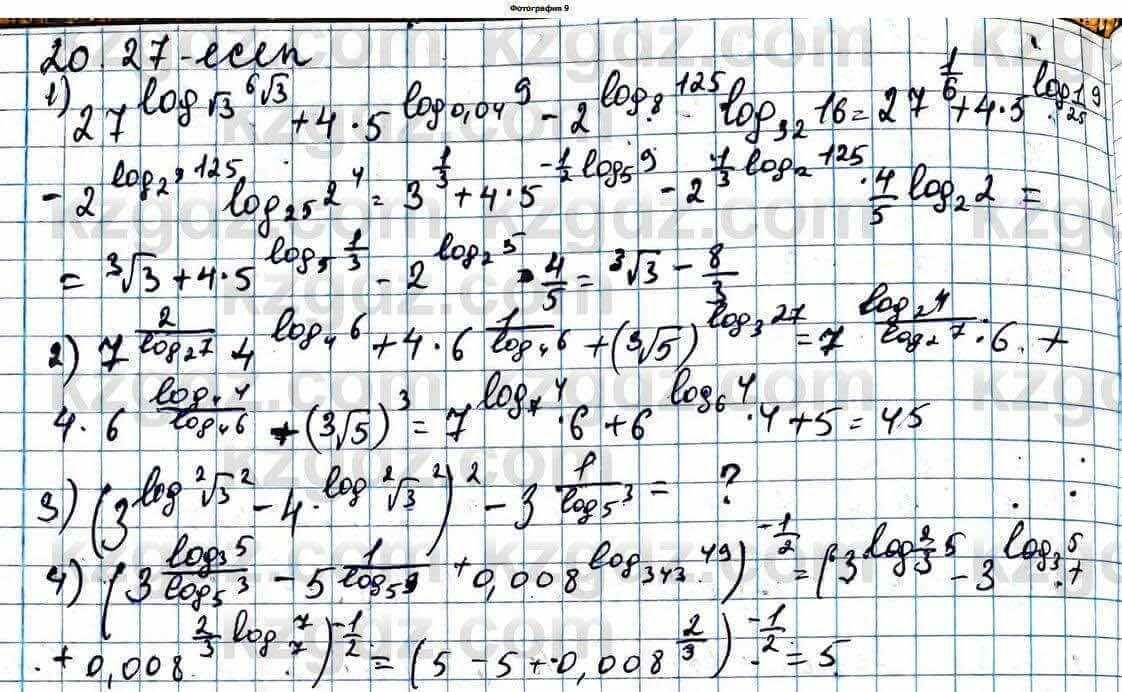 Фотография 9
20.27-есеп
1) 27^{log_{√3} ⁶√3} + 4·5^{log_{0,04} 9} - 2^{log_8 125} log_{32} 16 = 27^{1/6} + 4·5^{log_{1/25} 9}
- 2^{log_{2^3} 125} log_{25} 2^4 = 3^{1/3} + 4·5^{-1/2 log_5 9} - 2^{1/3 log_2 125} · 4/5 log_2 2 =
= ³√3 + 4·5^{log_5 1/3} - 2^{log_2 5} · 4/5 = ³√3 - 8/3
2) 7^{2/log_2 7} · 4^{log_4 6} + 4·6^{1/log_4 6} + (³√5)^{log_3 27} = 7^{log_2 4/log_2 7} · 6 +
4·6^{log_4 4/log_4 6} + (³√5)^3 = 7^{log_7 4} · 6 + 6^{log_6 4} · 4 + 5 = 45
3) (3^{log ²√3 2} - 4·^{log ²√3 2})^2 - 3^{1/log_5 3} = ?
4) (3^{log_3 5/log_5 3} - 5^{1/log_5 9} + 0,008^{log_{343} 49})^{-1/2} = (3^{log_3^2 5} - 3^{log_3 5} +
+ 0,008^{2/3 log_7 7})^{-1/2} = (5 - 5 + 0,008^{2/3})^{-1/2} = 5
kzgdz.com